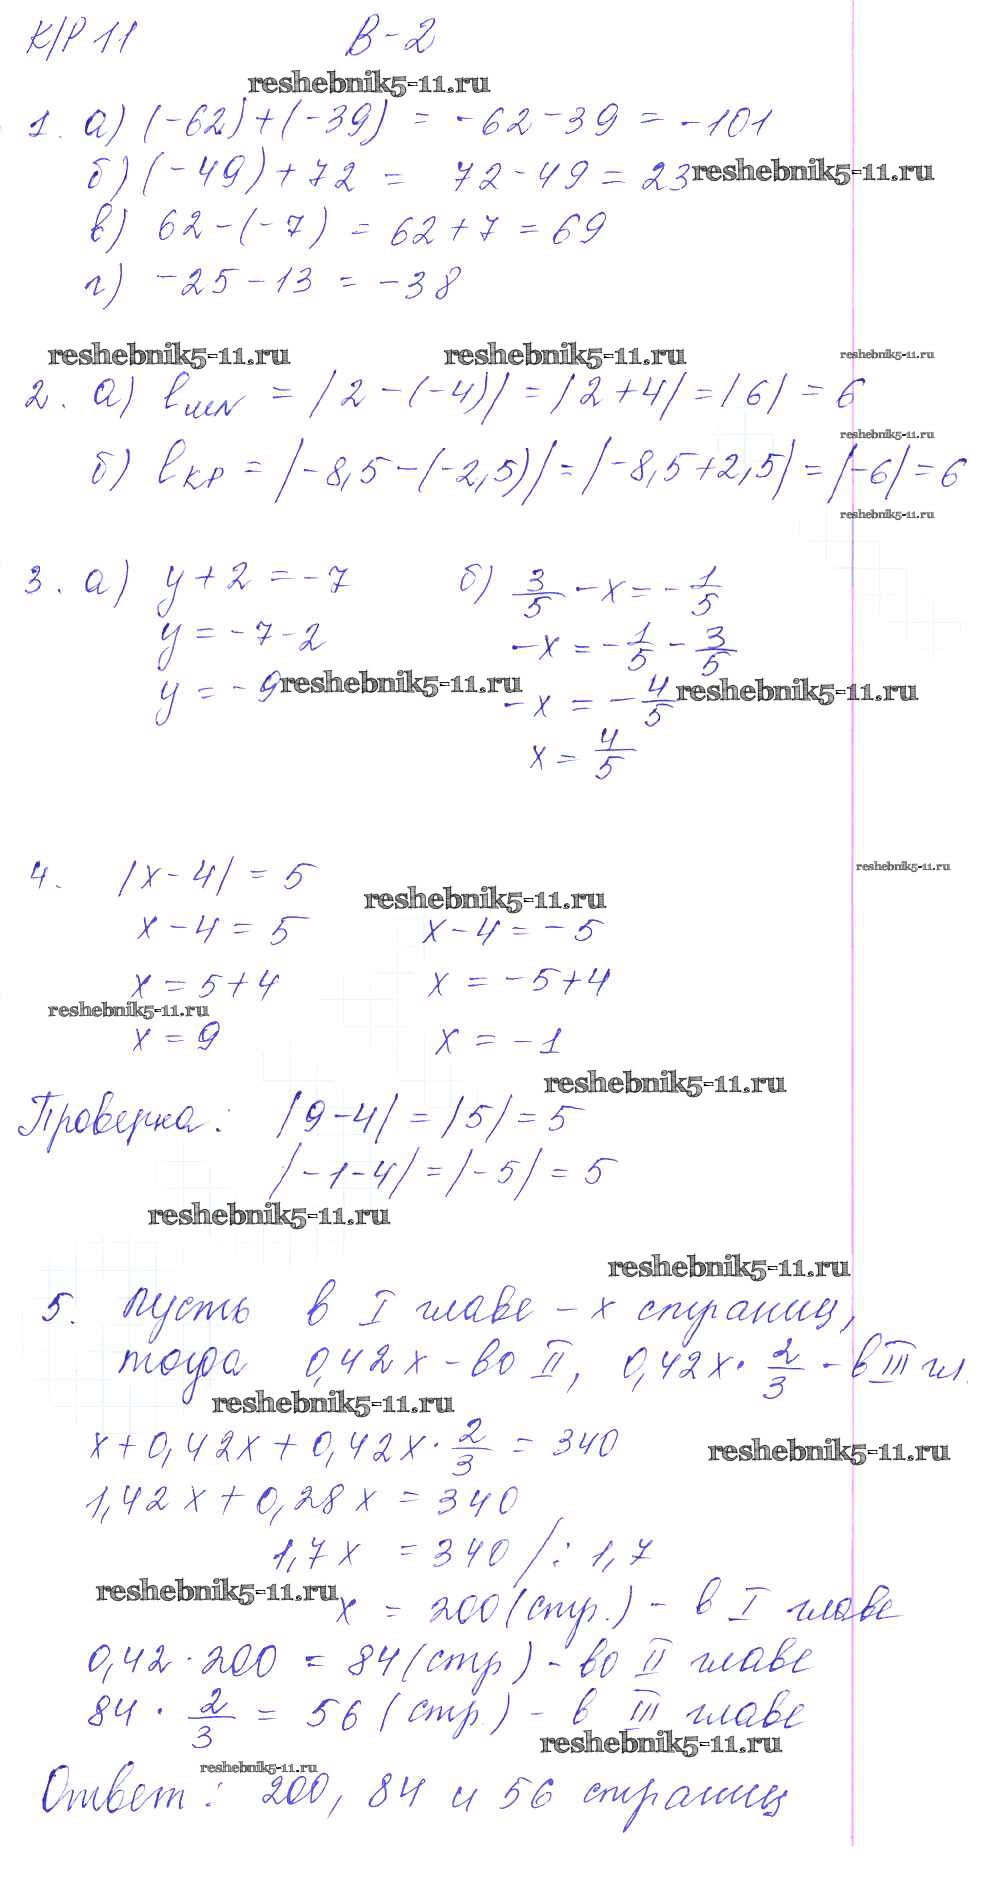 К/Р 11 В-2
reshebnik5-11.ru
1. а) (-62)+(-39) = -62-39 = -101
б) (-49)+72 = 72-49 = 23 reshebnik5-11.ru
в) 62-(-7) = 62+7 = 69
г) -25-13 = -38
reshebnik5-11.ru reshebnik5-11.ru reshebnik5-11.ru
2. а) l_MN = |2-(-4)| = |2+4| = |6| = 6
reshebnik5-11.ru
б) l_KP = |-8,5-(-2,5)| = |-8,5+2,5| = |-6| = 6
reshebnik5-11.ru
3. а) y+2 = -7 б) 3/5 - x = -1/5
y = -7-2 -x = -1/5 - 3/5
y = -9 reshebnik5-11.ru -x = -4/5 reshebnik5-11.ru
x = 4/5
4. |x-4| = 5 reshebnik5-11.ru
reshebnik5-11.ru
x-4 = 5 x-4 = -5
x = 5+4 x = -5+4
reshebnik5-11.ru
x = 9 x = -1
reshebnik5-11.ru
Проверка: |9-4| = |5| = 5
|-1-4| = |-5| = 5
reshebnik5-11.ru
reshebnik5-11.ru
5. Пусть в I главе - x страниц,
тогда 0,42x - во II, 0,42x · 2/3 - в III гл.
reshebnik5-11.ru
x+0,42x+0,42x · 2/3 = 340 reshebnik5-11.ru
1,42x+0,28x = 340
1,7x = 340 /: 1,7
reshebnik5-11.ru x = 200 (стр.) - в I главе
0,42 · 200 = 84 (стр) - во II главе
84 · 2/3 = 56 (стр.) - в III главе
reshebnik5-11.ru
reshebnik5-11.ru
Ответ: 200, 84 и 56 страниц